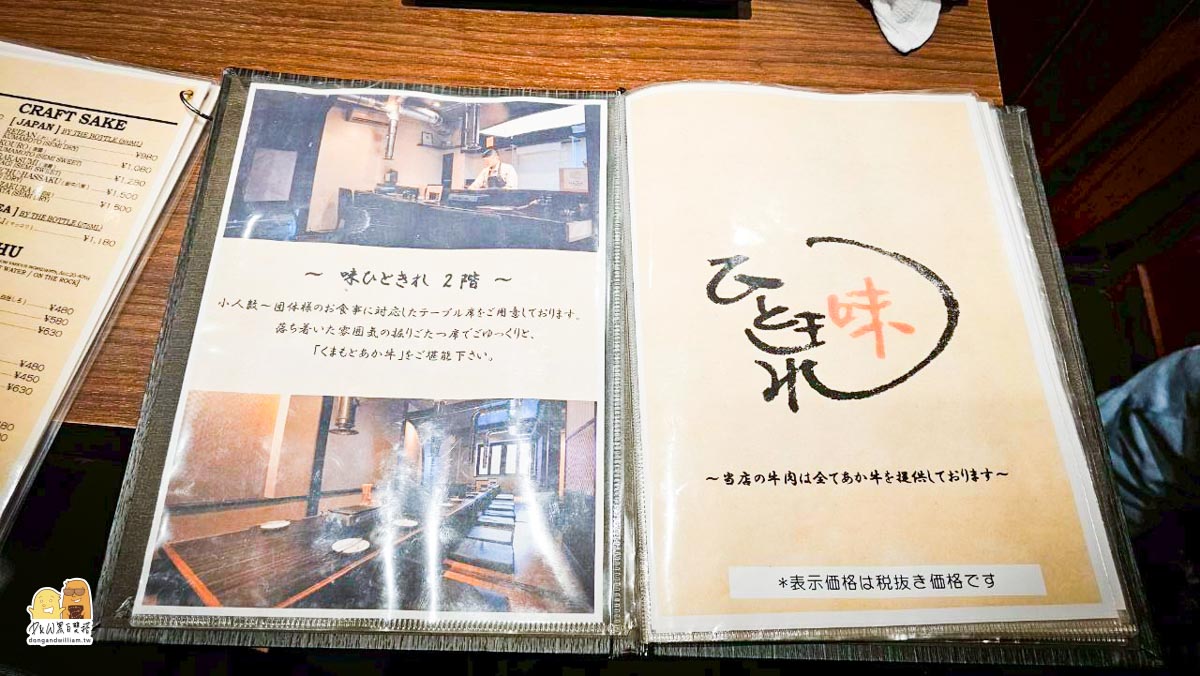 CRAFT SAKE
[ JAPAN ] BY THE BOTTLE
¥980
KUMAMOTO (SEMI DRY)
¥1,080
KUMAMOTO (SEMI SWEET)
¥1,280
HASSAKU
¥1,500
¥1,500
BY THE BOTTLE
¥1,180
HU
WATER / ON THE ROCK]
¥480
¥580
¥630
¥480
¥450
¥630
～ 味ひときれ 2階 ～
小人数～団体様のお食事に対応したテーブル席をご用意しております。
落ち着いた雰囲気の掘りごたつ席でごゆっくりと、
「くまもとあか牛」をご堪能下さい。
味
ひときれ
～当店の牛肉は全てあか牛を提供しております～
*表示価格は税抜き価格です
dongandwilliam.tw